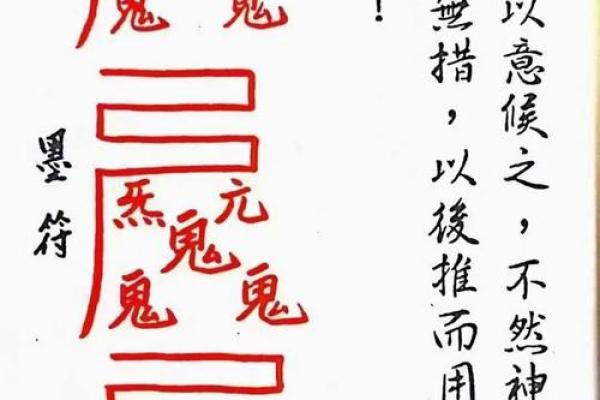 以意候之，不然神
無措，以後推而用
！
鬼 鬼
炁 元
鬼
鬼 鬼
墨符